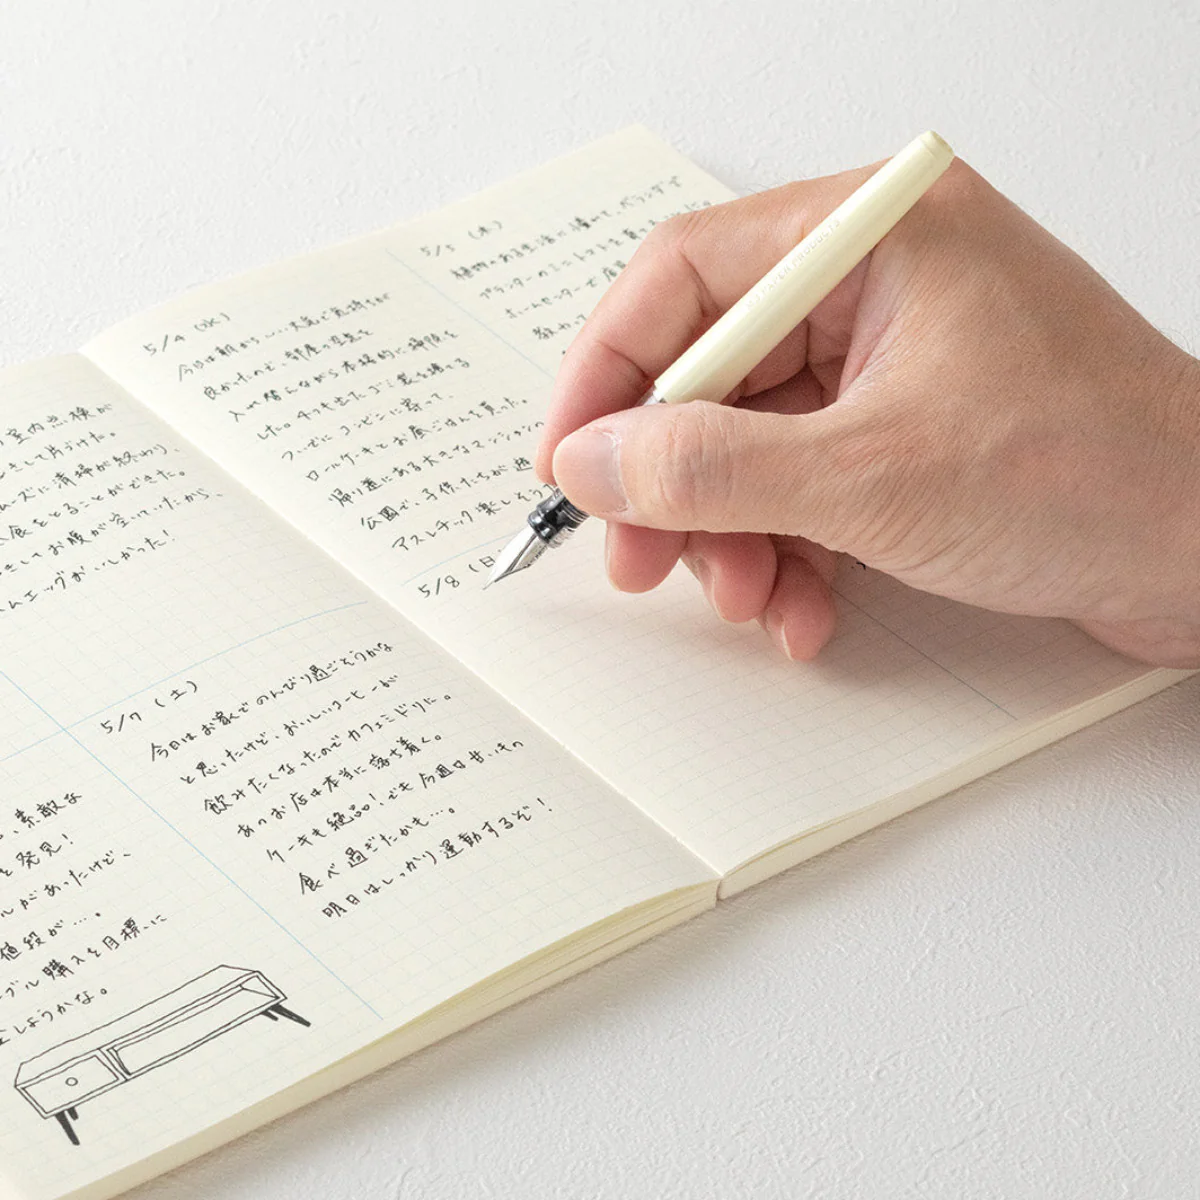 室内点検が
して片づけた。
ムーズに清掃が終わり、
食をとることができた。
してお腹が空いていたから、
ハムエッグがおいしかった！
素敵な
を発見！
があったけど、
値段が…。
ブル購入を目標に
しようかな。
5/4（水）
今日は朝からいい天気で気持ちが
良かったので、部屋の空気を
入れ替えながら本格的に掃除を
した。
ついでにコンビニに寄って、
ロールケーキとお昼ごはんを買った。
帰り道にある大きなマンションの
公園で、子供たちが遊
アスレチック楽しそう
5/5（木）
植物のある生活に憧れて、ベランダで
プランターのミニトマトを
ホームセンターで店員
教わって
5/7（土）
今日はお家でのんびり過ごそうかな
と思ったけど、おいしいコーヒーが
飲みたくなったのでカフェミドリに。
あのお店は本当に落ち着く。
ケーキも絶品！でも今週は甘いもの
食べ過ぎたかも…。
明日はしっかり運動するぞ！
5/8（日
MD PAPER PRODUCTS